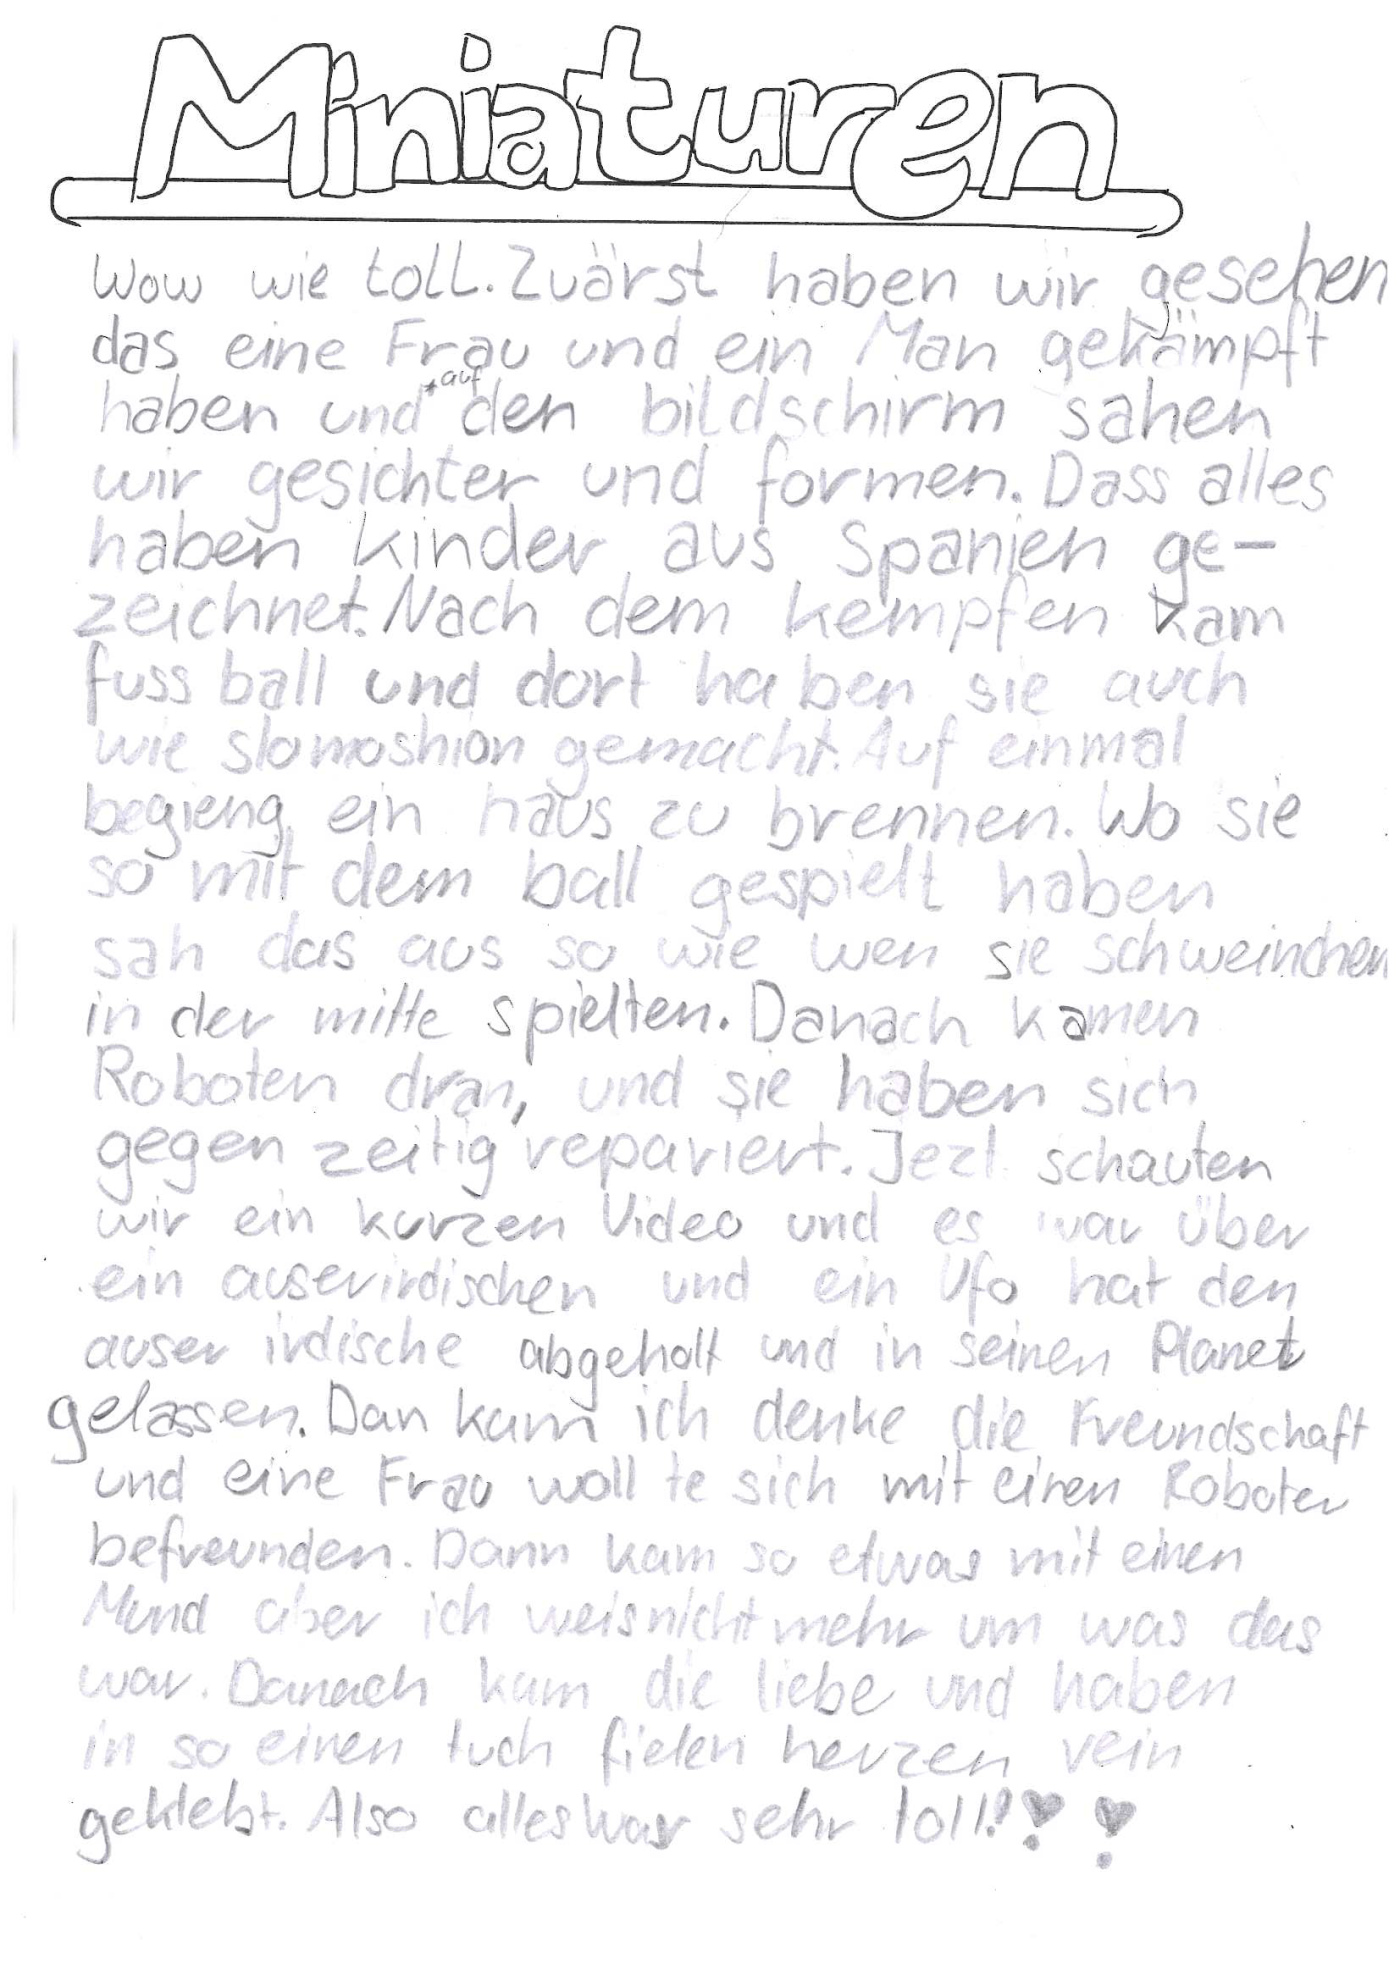 Miniaturen
Wow wie toll. Zuärst haben wir gesehen
das eine Frau und ein Man gekämpft
haben und *auf den bildschirm sahen
wir gesichter und formen. Dass alles
haben kinder aus Spanien ge-
zeichnet. Nach dem kempfen kam
fuss ball und dort haben sie auch
wie slomoshion gemacht. Auf einmal
begieng ein haus zu brennen. Wo sie
so mit dem ball gespielt haben
sah das aus so wie wen sie schweinchen
in der mitte spielten. Danach kamen
Roboten dran, und sie haben sich
gegen zeitig repariert. Jezt schauten
wir ein kurzen Video und es war über
ein auserirdischen und ein Ufo hat den
auser irdische abgeholt und in seinen Planet
gelassen. Dan kam ich denke die Freundschaft
und eine Frau woll te sich mit einen Roboter
befreunden. Dann kam so etwas mit einen
Mund aber ich weis nicht mehr um was das
war. Danach kam die liebe und haben
in so einen tuch fielen herzen rein
geklebt. Also alles war sehr toll!